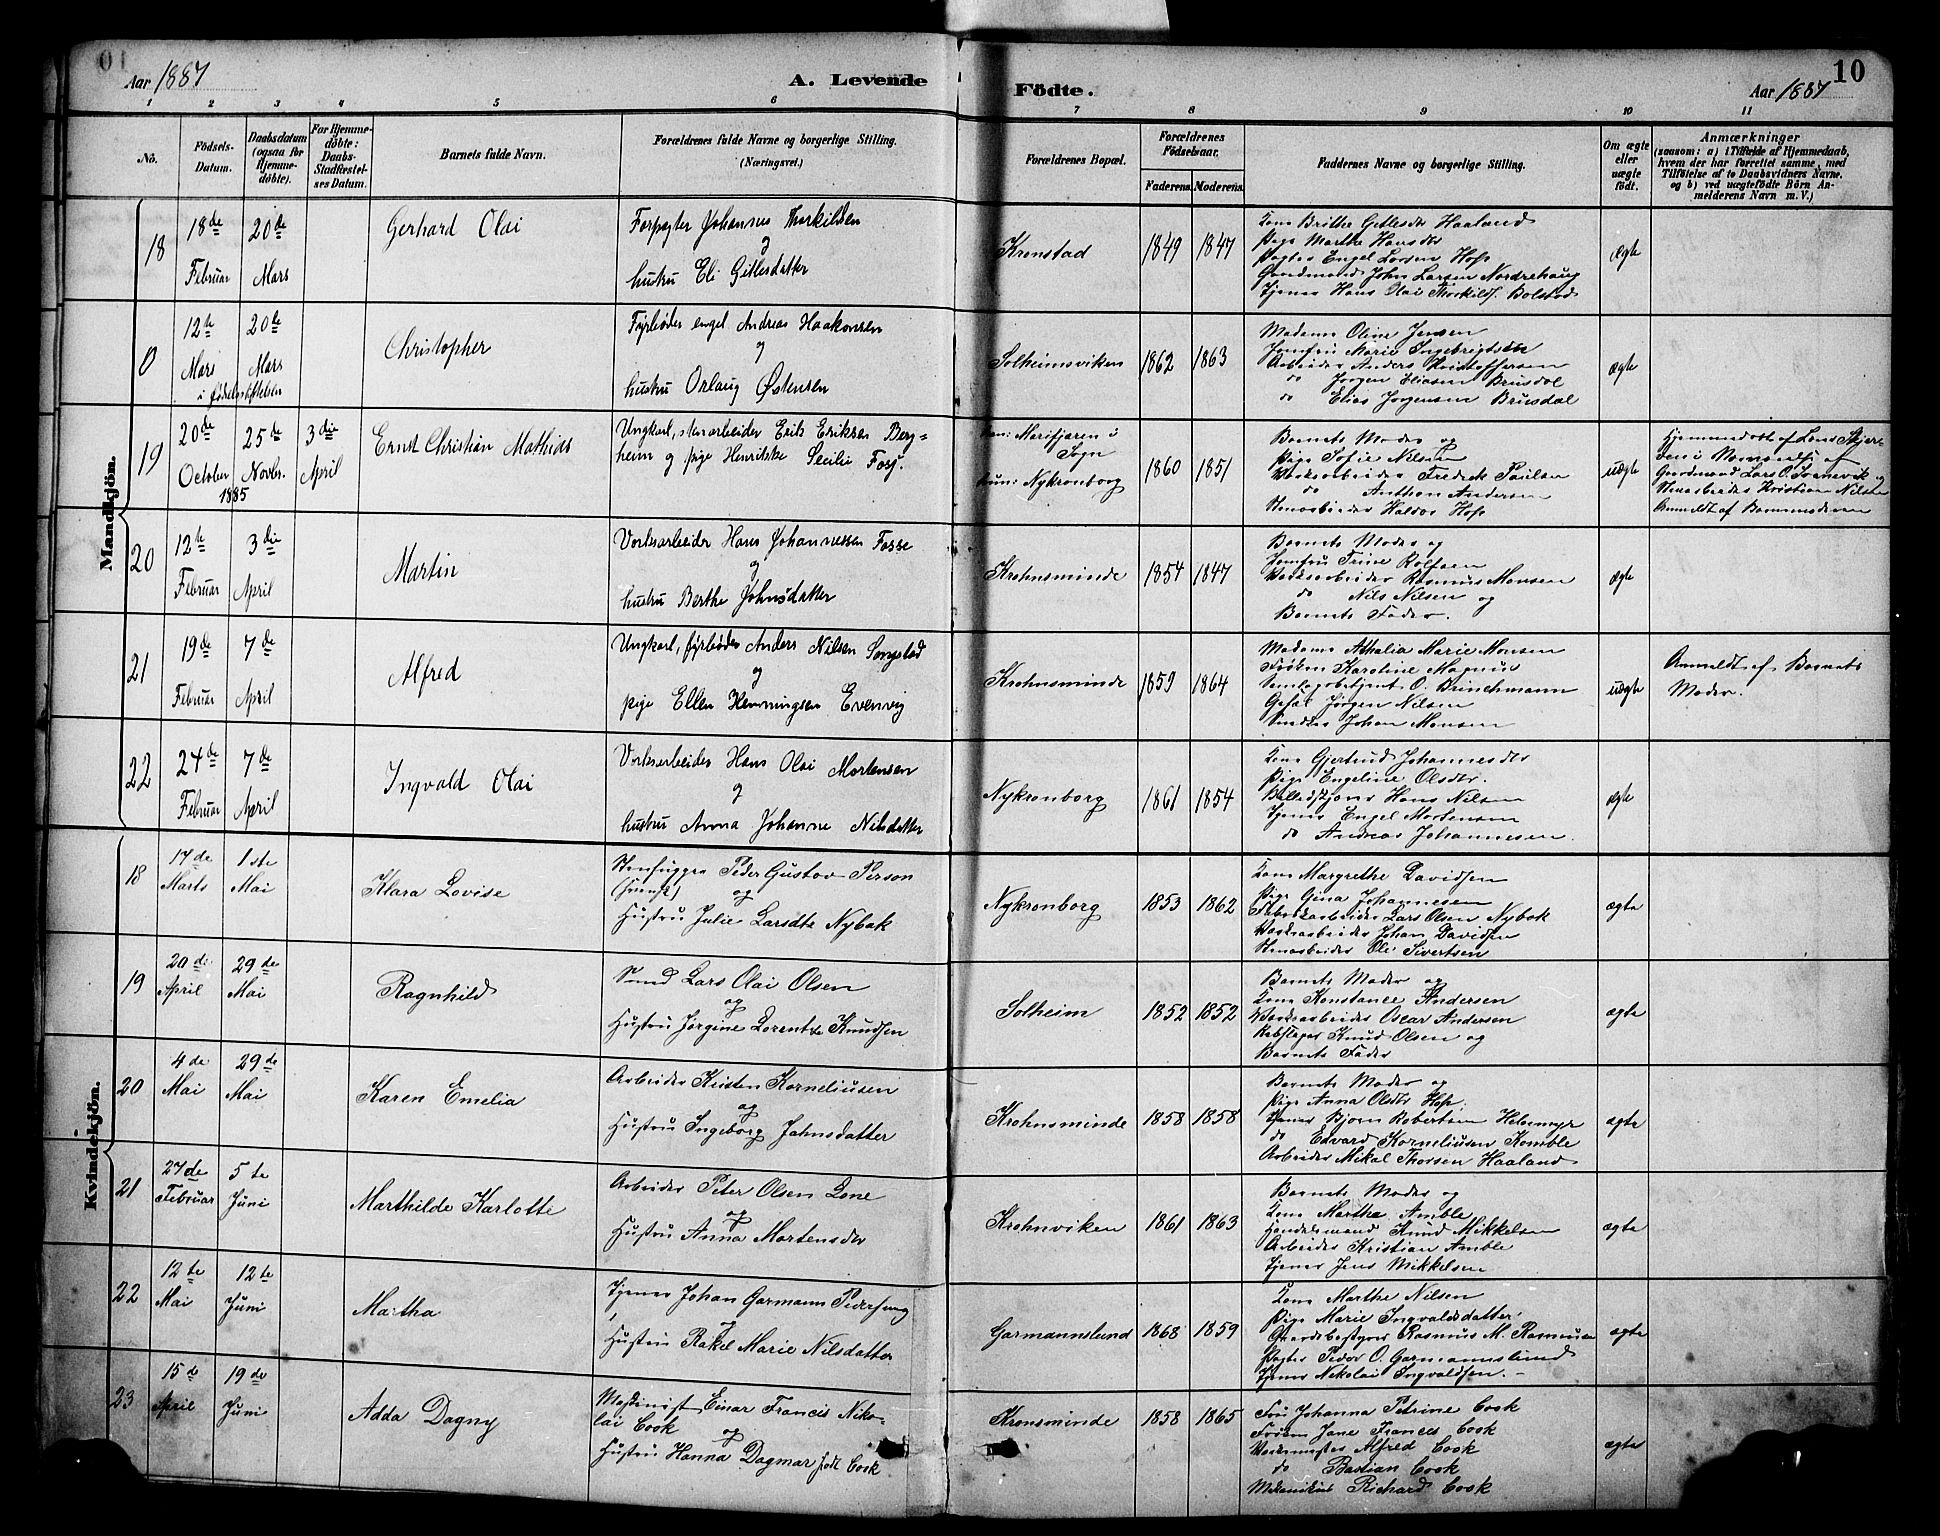 Aar 1887
A. Levende
Födte.
Aar 1887
10
1 2 3 4 5 6 7 8 9 10 11
No.
Födsels-
Datum.
Daabsdatum
(ogsaa for
Hjemme-
döbte).
For Hjemme-
döbte:
Daabs-
Stadfæstel-
ses Datum.
Barnets fulde Navn.
Forældrenes fulde Navne og borgerlige Stilling.
(Næringsvei.)
Forældrenes Bopæl.
Forældrenes
Födselsaar.
Faderens. Moderens.
Faddernes Navne og borgerlige Stilling.
Om ægte
eller
uægte
födt.
Anmærkninger
(saasom: a) i Tilfælde af Hjemmedaab,
hvem der har forrettet samme, med
Tilföielse af to Daabsvidners Navne.
og b) ved uægtefödte Börn An-
melderens Navn m. V.)
Mandkjön.
18
18de
Februar
20de
Mars
Gerhard Olai
Forpagter Johannes Thorkildsen
og
hustru Eli Gitlesdatter
Kronstad
1849 1847
Kone Brithe Gitlesdtr Haaland
Pige Marthe Hansdtr
Pagter Engel Larsen Hop
Gaardmand John Larsen Nordrehaug
Tjener Hans Olai Thorkilds. Bolstad
Ægte
0
12te
Mars
20de
Mars
i fødselsstiftelsen
Christopher
Fyrbøder Engel Andreas Haakonsen
og
hustru Orlaug Østensen
Solheimsviken
1862 1863
Madame Oline Jensen
Jomfru Marie Ingebrigtsen
Arbeider Anders Kristoffersen
do Jørgen Eliasen Brusdal
do Elias Jørgensen Brusdal
ægte
19
20de
October
1885
25de
Novbr.
3die
April
Ernst Christian Mathias
Ungkarl, stenarbeider Erik Eriksen Berg=
heim og pige Henrikke Secilie Fosj.
han: Marifjæren i
Sogn
hun: Nykronborg
1860 1851
Barnets Moder og
Pige Sofie Nilsen
Værksarbeider Fredrik Paulsen
do Anthon Andersen
Stenarbeider Haldor Hop
uægte
Gaardmand Lars O.
Stenarbeider Kristian Nilsen
Anmeldt af Barnemoderen
20
12te
Februar
3die
April
Martin
Verksarbeider Hans Johannessen Fosse
og
hustru Berthe Johnsdatter
Krohnsminde
1854 1847
Barnets Moder og
Jomfru Trine Rolfsen
Værksarbeider Rasmus Monsen
do Nils Nilsen og
Barnets Fader.
ægte
21
19de
Februar
7de
April
Alfred
Ungkarl, fyrbøder Anders Nilsen Songstad
og
pige Ellen Henningsen Evenvig
Krohnsminde
1859 1864
Madame Athalia Marie Monsen
Frøken Karoline Magnus
O. Brinchmann
Jørgen Nilsen
Johan Monsen
uægte
Anmeldt af Barnets
Moder.
22
24de
Februar
7de
April
Ingvald Olai
Verksarbeider Hans Olai Mortensen
og
hustru Anna Johanne Nilsdatter
Nykronborg
1861 1854
Kone Gjertrud Johannesdtr
Pige Engeline Olsdtr.
Hans Nilsen
Tjener Engel Mortensen
do Andreas Johannesen
ægte
Kvindekjön.
18
17de
Marts
1ste
Mai
Klara Lovise
Stenhugger Peder Gustav Person
(svensk) og
Hustru Julie Larsdtr Nybak
Nykronborg
1853 1862
Kone Margrethe Davidsen
Pige Gina Johannesen
Fabrikarbeider Lars Olsen Nybak
Værksarbeider Johan Davidsen
Stenarbeider Ole Sivertsen
ægte
19
20de
April
29de
Mai
Ragnhild
Smed Lars Olai Olsen
og
Hustru Jørgine Lorentze Knudsen
Solheim
1852 1852
Barnets Moder og
Kone Konstance Andersen
Værksarbeider Oscar Andersen
Rebslager Knud Olsen og
Barnets Fader
ægte
20
4de
Mai
29de
Mai
Karen Emelia
Arbeider Kristen Korneliusen
og
Hustru Ingeborg Jahnsdatter
Krohnsminde
1858 1858
Barnets Moder og
Pige Anna Olsdtr Hop.
Tjener Bjørn Robertsen
do Edvard Korneliusen Komble
Arbeider Mikal Thorsen Haaland
ægte
21
27de
Februar
5te
Juni
Marthilde Karlotte
Arbeider Peter Olsen Lone
og
Hustru Anna Mortensdtr
Krohnviken
1861 1863
Barnets Moder og
Kone Martha Amble
Handelsmand Knud Mikkelsen
Arbeider Kristian Amble
Tjener Jens Mikkelsen
ægte
22
12te
Mai
12te
Juni
Martha
Tjener Johan Garmann Pedersen
og
Hustru Rakel Marie Nilsdatter
Garmannslund
1868 1859
Kone Marthe Nilsen
Pige Marie Ingvaldsdatter
Gaardsbestyrer Rasmus M. Rasmusen
Pagter Peder O. Garmannslund
Tjener Nikolai Ingvaldsen.
ægte
23
15de
April
19de
Juni
Adda Dagny
Maskinist Einar Francis Niko-
lai Cook og
Hustru Hanna Dagmar født Cook
Kronsminde
1858 1865
Fru Johanna Petrine Cook
Frøken Jane Frances Cook
Værkmester Alfred Cook
do Bastian Cook
Mekanikus Richard Cook
ægte